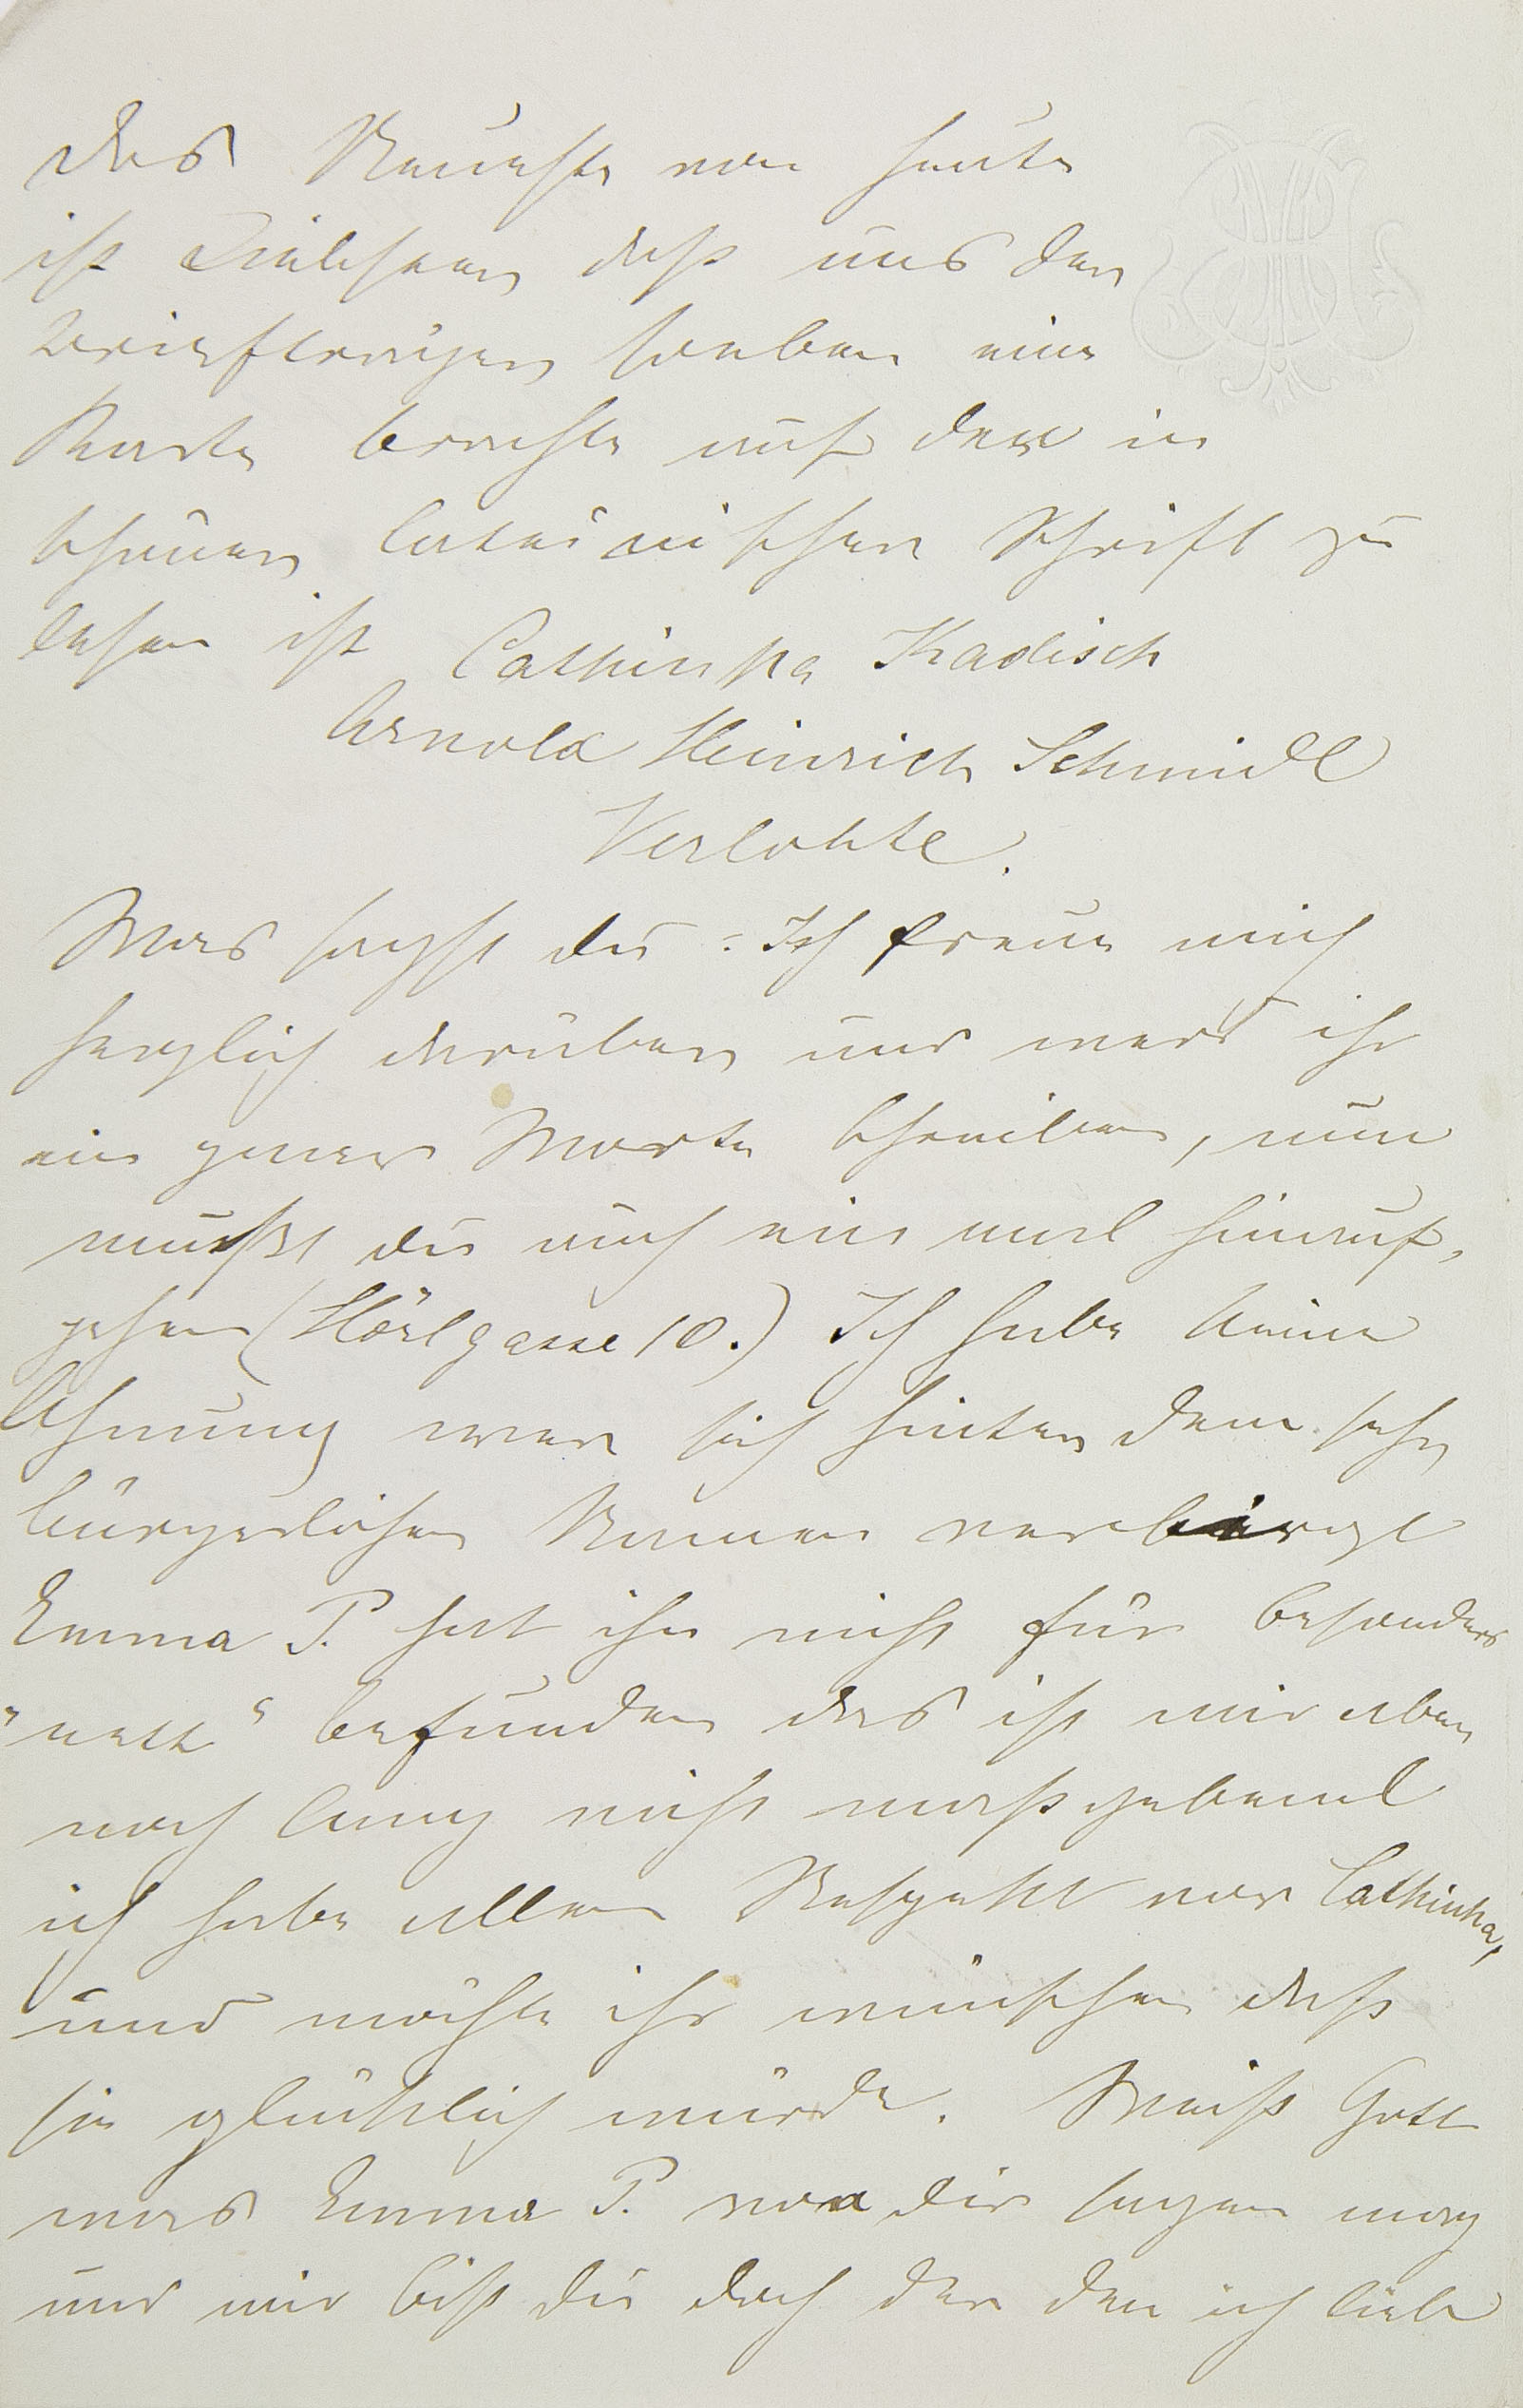 Das Neueste von heute
ist Liebster daß uns der
Briefträger soeben eine
Karte brachte auf der in
schöner lateinischer Schrift zu
lesen ist Cathinka Kadisch
Arnold Heinrich Schmidl
Verlobte.
Was sagst du - Ich freue mich
herzlich darüber und werd ihr
ein paar Worte schreiben, nun
mußt du auch ein mal hinauf
gehen (Hörlgasse 10.) Ich habe keine
Ahnung wer sich hinter dem sehr
bürgerlichen Namen verbirgt
Emma P. hat ihn nicht für besonders
"nett" befunden das ist mir aber
noch lang nicht maßgebend
ich habe allen Respekt vor Cathinka,
und möchte ihr wünschen daß
sie glücklich würde. Weiß Gott
was Emma P. von dir sagen mag
und mir bist du doch der den ich liebe